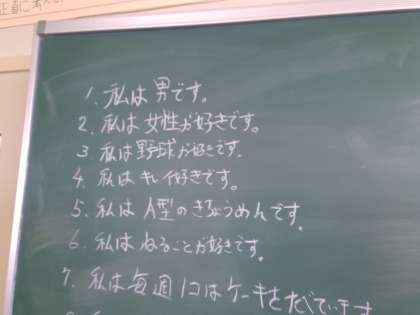 正直に考え
1. 私は男です。
2. 私は女性が好きです。
3 私は野球が好きです。
4. 私はキレイ好きです。
5. 私はA型のきちょうめんです。
6. 私はねることが好きです。
7. 私は毎週1コはケーキをたべています
8